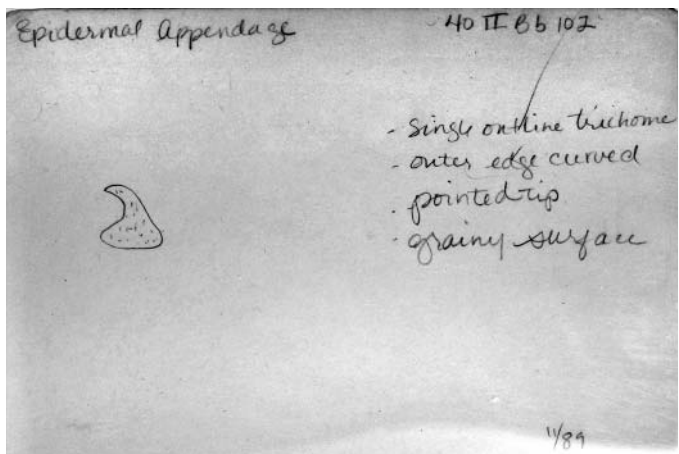 Epidermal Appendage
40 II Bb 102
- Single outline trichome
- outer edge curved
. pointed tip
. grainy surface
11/89